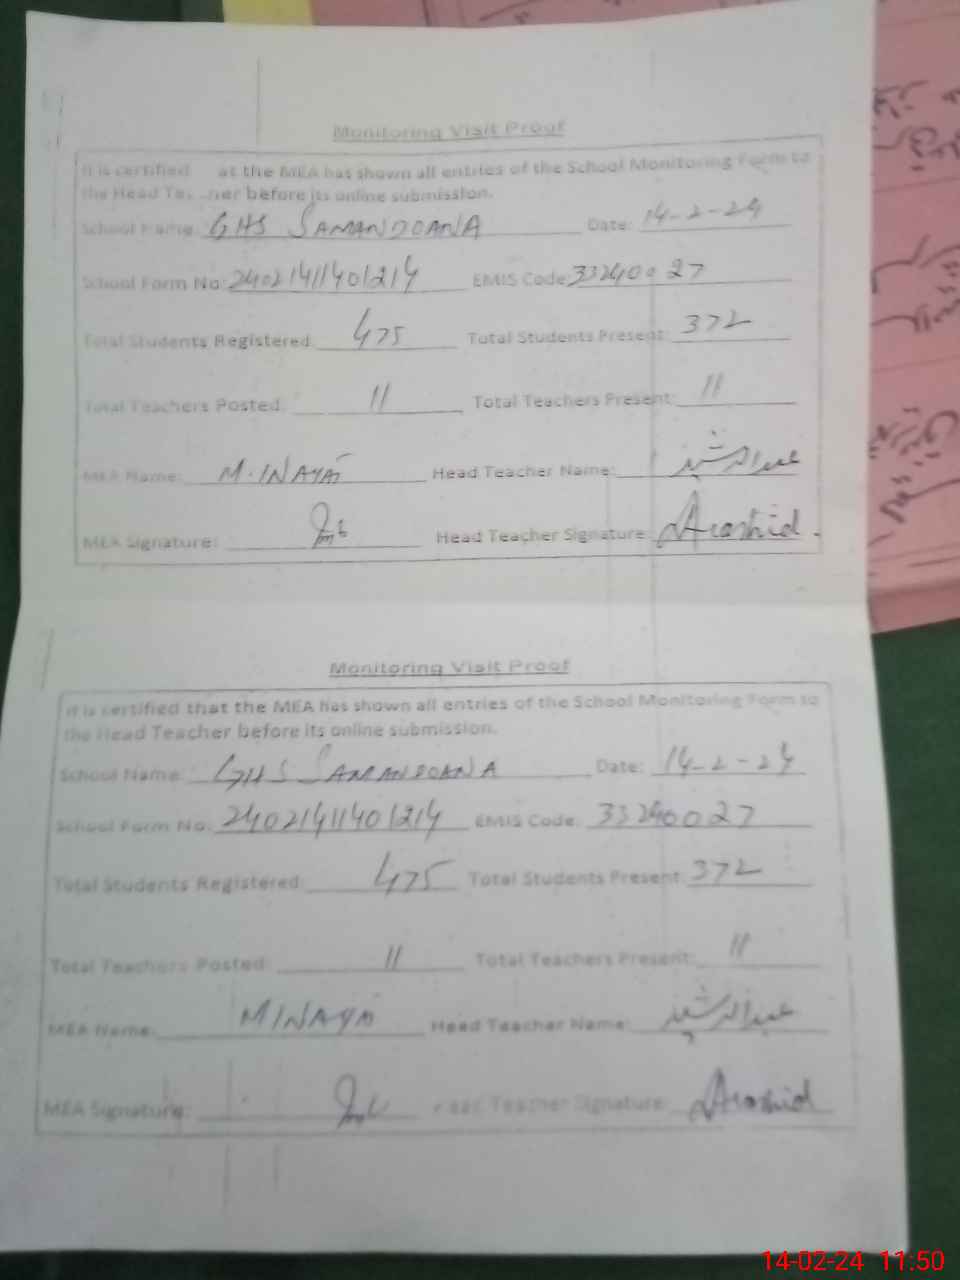 Monitoring Visit Proof
It is certified at the MEA has shown all entries of the School Monitoring Form to
the Head Teacher before its online submission.
School Name: GHS SAMANDOANA Date: 14-2-24
School Form No: 24021411401214 EMIS Code: 33240027
Total Students Registered: 475 Total Students Present: 372
Total Teachers Posted: 11 Total Teachers Present: 11
MEA Name: M.INAYAT Head Teacher Name: عبدالرشید
MEA Signature: Head Teacher Signature: Arashid.
Monitoring Visit Proof
It is certified that the MEA has shown all entries of the School Monitoring Form to
the Head Teacher before its online submission.
School Name: GHS SAMANDOANA Date: 14-2-24
School Form No: 24021411401214 EMIS Code: 33240027
Total Students Registered: 475 Total Students Present: 372
Total Teachers Posted: 11 Total Teachers Present: 11
MEA Name: M INAYAT Head Teacher Name: عبدالرشید
MEA Signature: Head Teacher Signature: Arashid
14-02-24 11:50